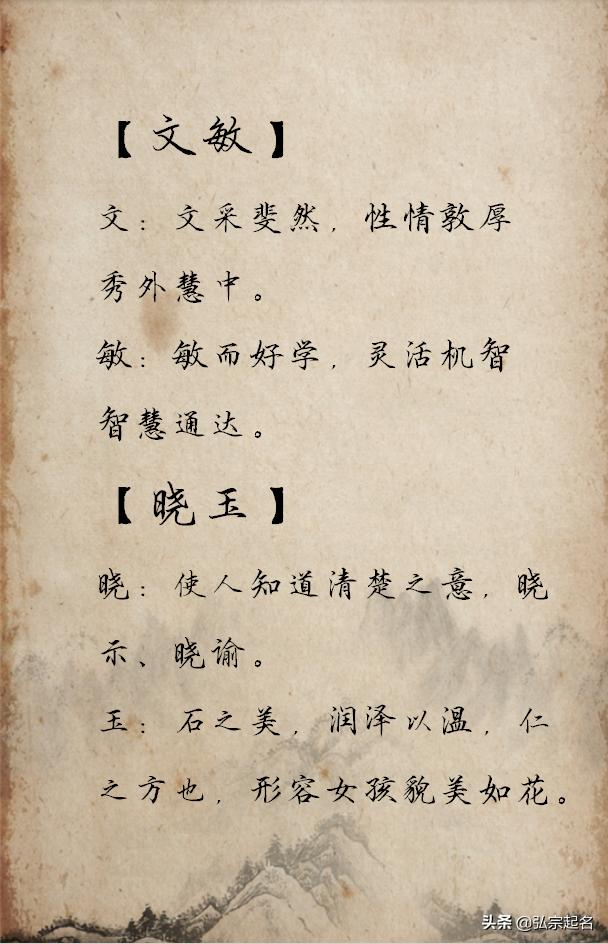 【文敏】
文：文采斐然，性情敦厚
秀外慧中。
敏：敏而好学，灵活机智
智慧通达。
【晓玉】
晓：使人知道清楚之意，晓
示、晓谕。
玉：石之美，润泽以温，仁
之方也，形容女孩貌美如花。
头条 @弘宗起名